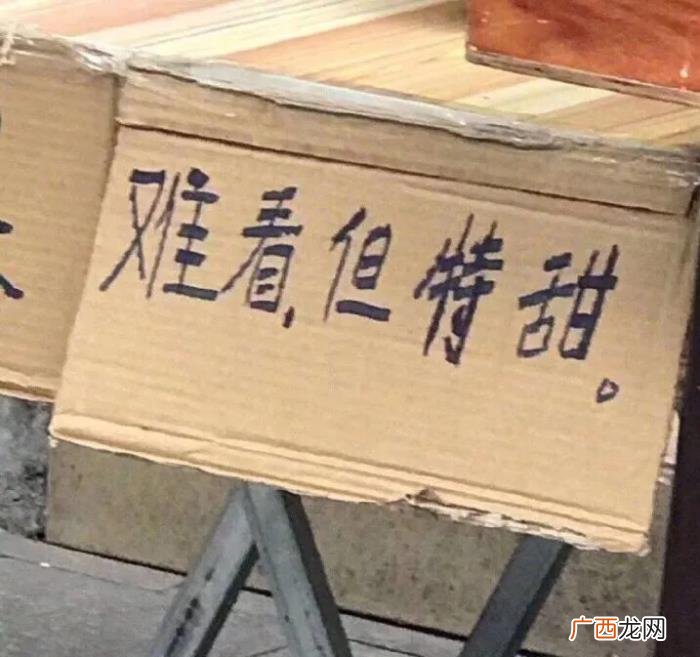 难看,但特甜。
广西龙网